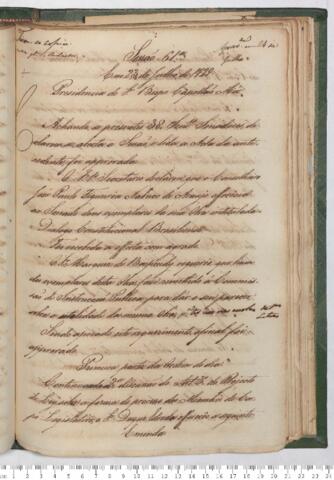 Sessão 61ª
Em 23 de Julho de 1829
Presidencia do Sr Bispo Capellão Mór
Achando-se presentes 38 Senadores
declarou-se aberta a Sessão e lida a Acta da ante
cedente foi approvada
O Secretario declarou que o Conselheiro
José Paulo Figueirôa Nabuco de Araujo offerecia
ao Senado dous exemplares da sua Obra intitulada
Dialogo Constitucional Brasiliense
Foi recebida a offerta com agrado
O Sr Marquez de requereu que hum
dos exemplares desta Obra fosse remettido á Commis
são de Instrucção Publica para dar o seu parecer
sobre a utilidade da mesma Obra
Sendo apoiado este requerimento, afinal foi
approvado
Primeira parte da Ordem do Dia
Continuando a discussão do Art. do Projecto
de Lei sobre a forma do processo dos Membros do Cor
po Legislativo, o Sr Duque Estrada offereceo a seguinte
Emenda